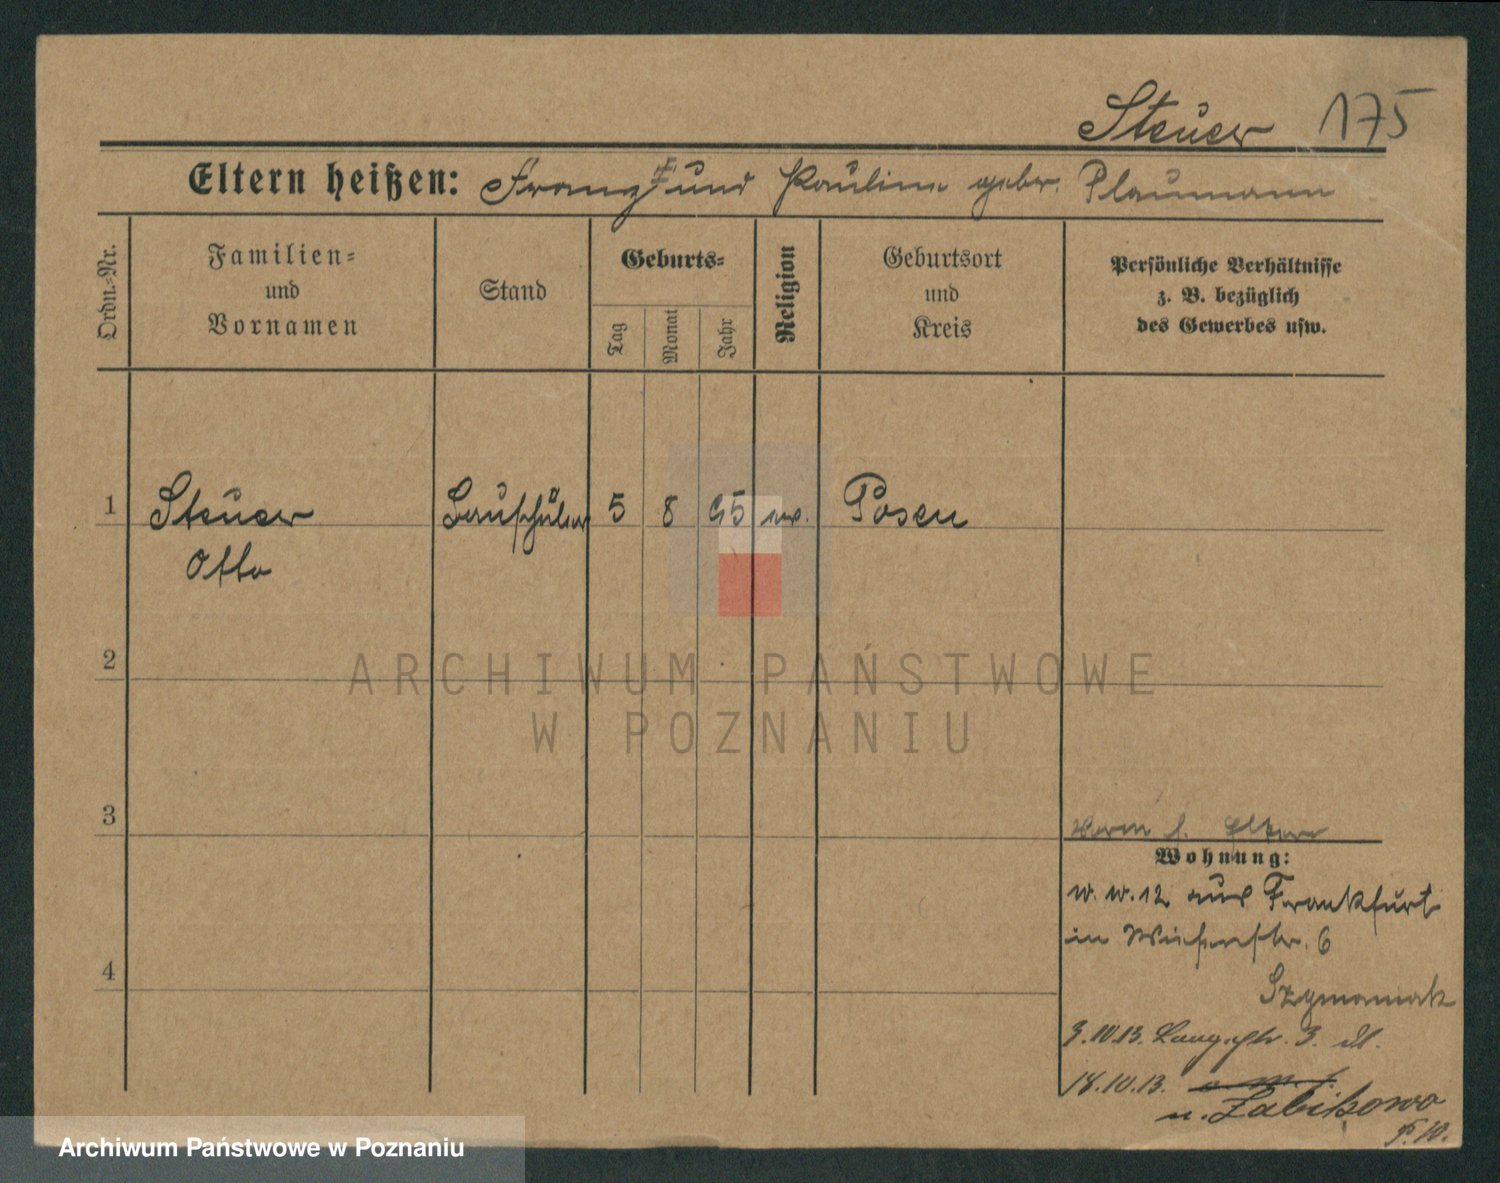 Steuer 175
Eltern heißen: Franz ‡ und Pauline gebor. Plaumann
Ordn.-Nr.
Familien-
und
Vornamen
Stand
Geburts-
Tag
Monat
Jahr
Religion
Geburtsort
und
Kreis
Persönliche Verhältnisse
z. B. bezüglich
des Gewerbes usw.
1 Steuer Bauschüler 5 8 95 ev. Posen
Otto
2
ARCHIWUM PAŃSTWOWE
W POZNANIU
3
Eltern
Wohnung:
12 aus Frankfurt
in Wiesenstr. 6
4
Szymaniak
3.10.13. Langestr. 3.
18.10.13.
n. Zabikowo
Archiwum Państwowe w Poznaniu